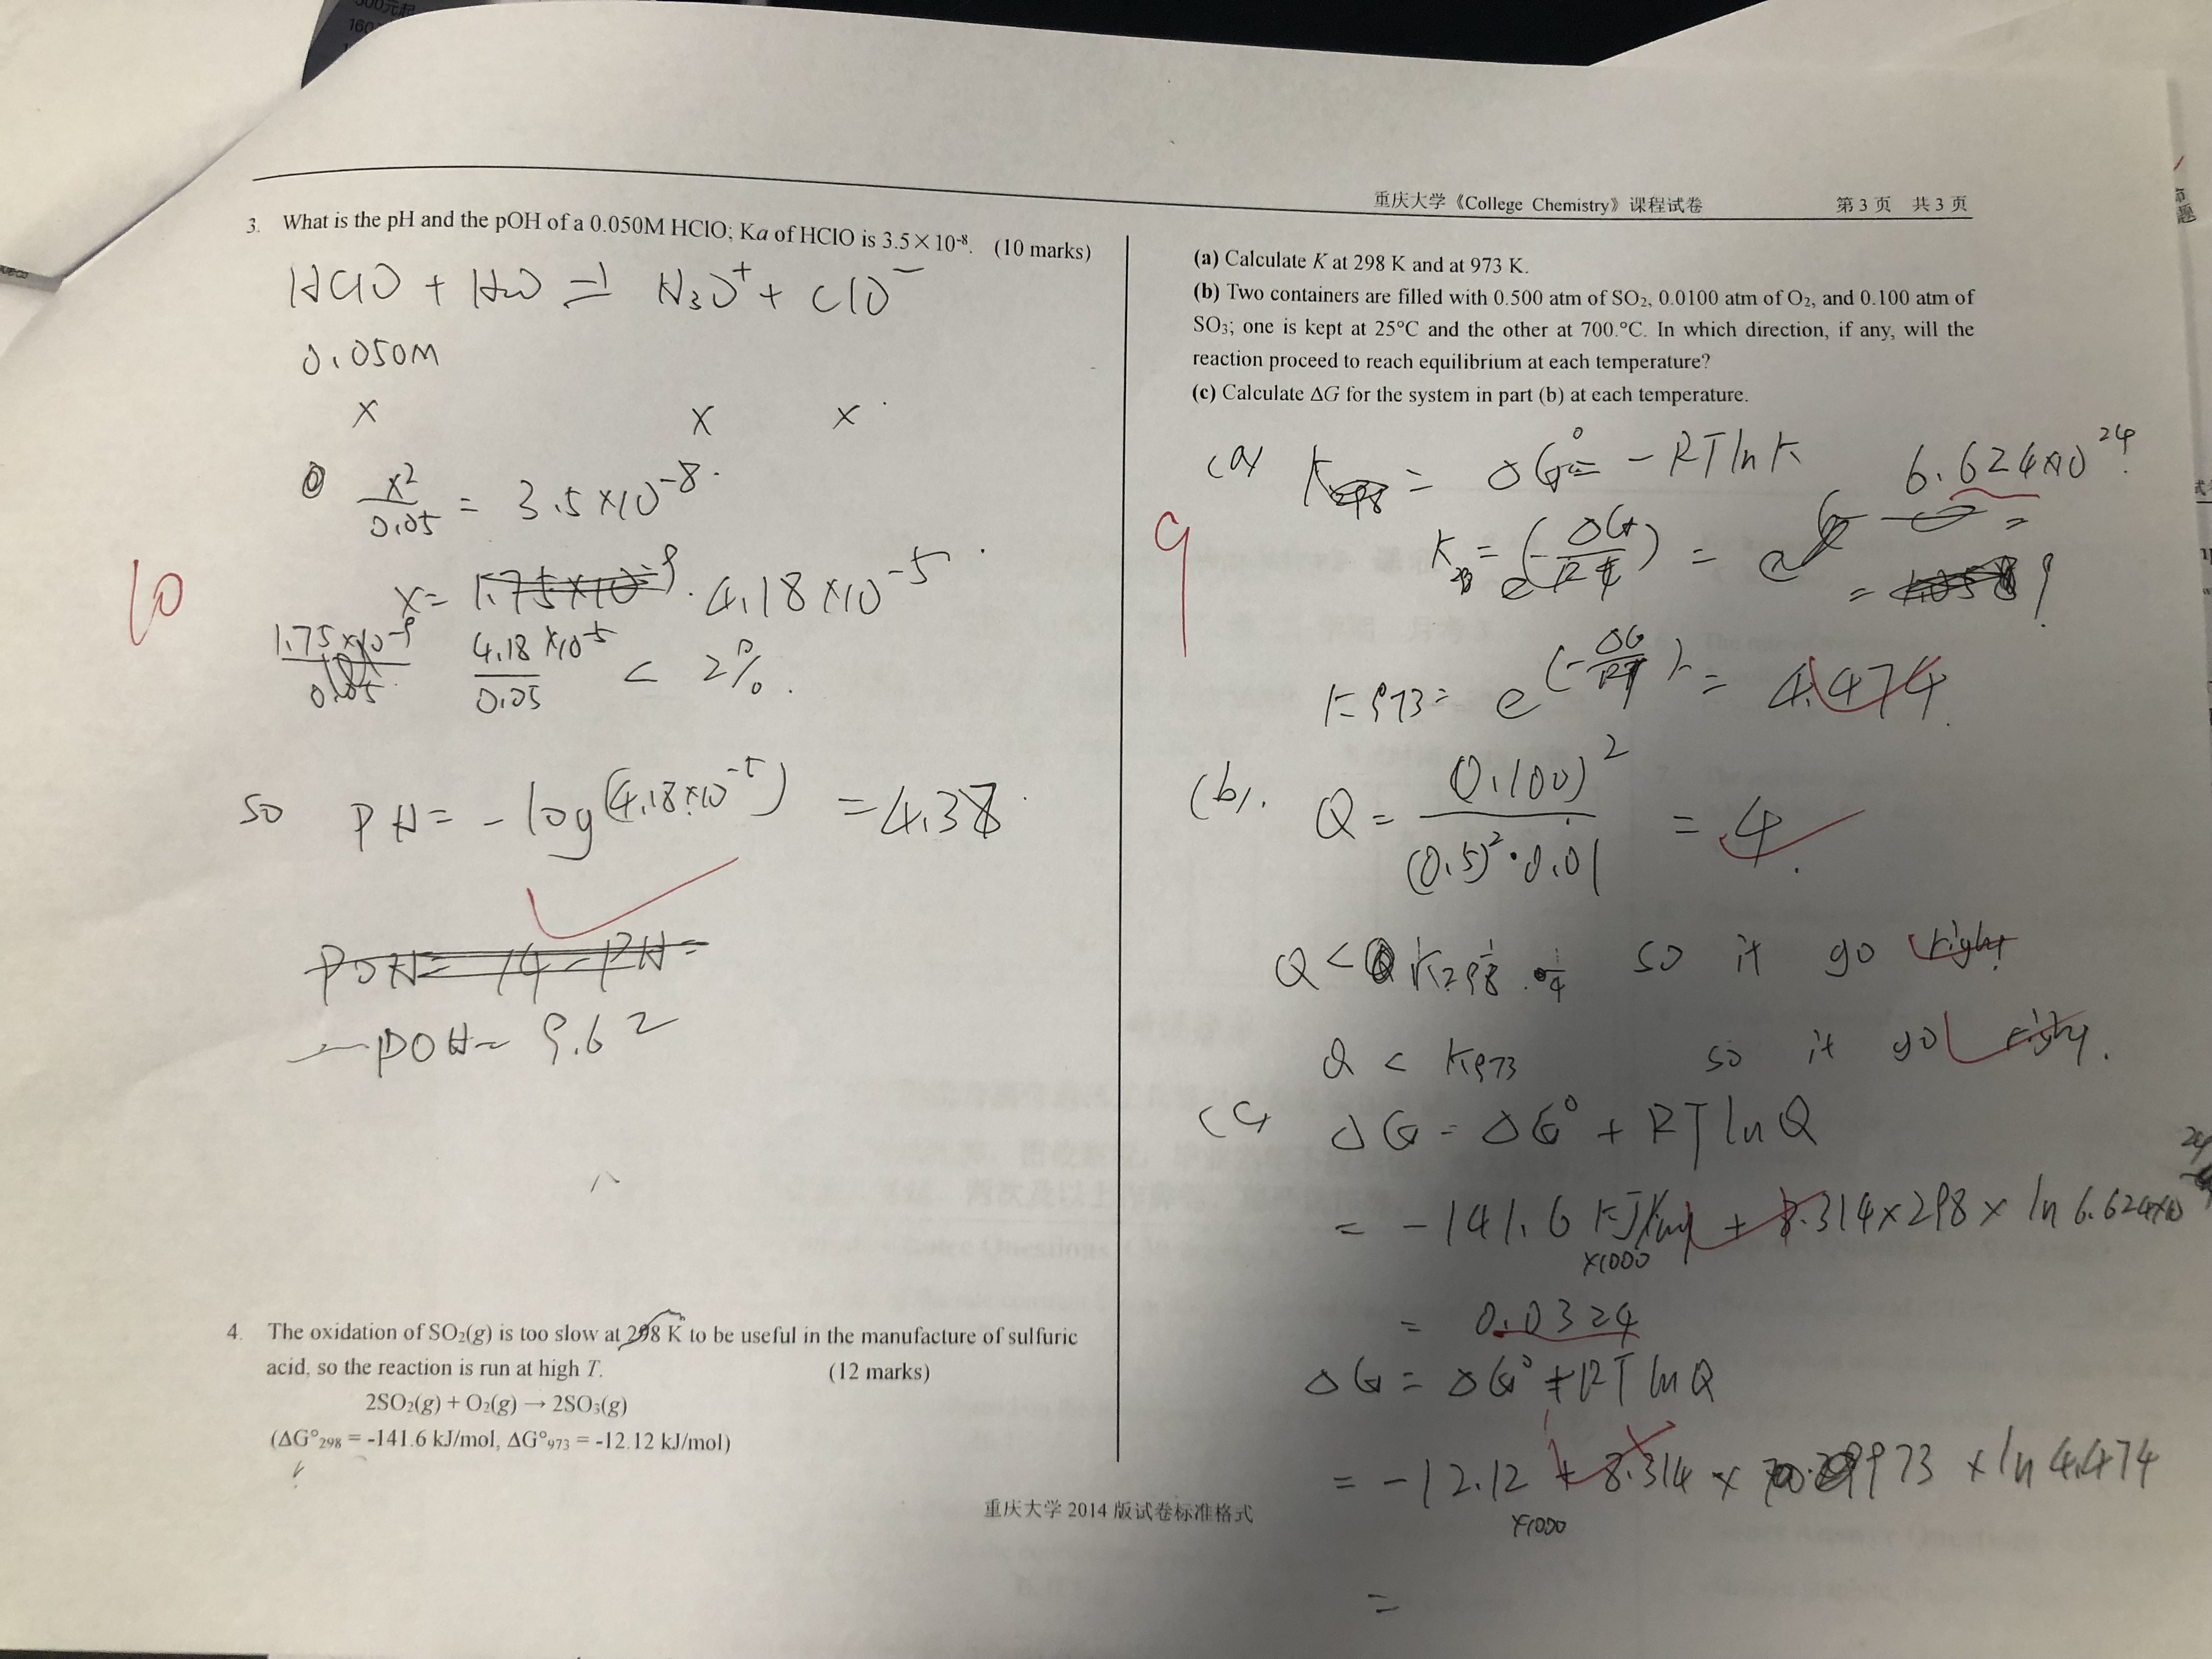 重庆大学《College Chemistry》课程试卷 第 3 页 共 3 页
3. What is the pH and the pOH of a 0.050M HClO; Ka of HClO is 3.5×10⁻⁸. (10 marks)
HClO + H₂O ⇌ H₃O⁺ + ClO⁻
0.050M
x x x
x²/0.05 = 3.5×10⁻⁸.
x = 4.18×10⁻⁵.
10
4.18×10⁻⁵/0.05 < 2%.
so PH = -log(4.18×10⁻⁵) = 4.38
POH = 14 - PH =
POH = 9.62
4. The oxidation of SO₂(g) is too slow at 298 K to be useful in the manufacture of sulfuric
acid, so the reaction is run at high T. (12 marks)
2SO₂(g) + O₂(g) → 2SO₃(g)
(ΔG°₂₉₈ = -141.6 kJ/mol, ΔG°₉₇₃ = -12.12 kJ/mol)
(a) Calculate K at 298 K and at 973 K.
(b) Two containers are filled with 0.500 atm of SO₂, 0.0100 atm of O₂, and 0.100 atm of
SO₃; one is kept at 25°C and the other at 700.°C. In which direction, if any, will the
reaction proceed to reach equilibrium at each temperature?
(c) Calculate ΔG for the system in part (b) at each temperature.
(a) K = ΔG° = -RT ln K
6.624×10²⁴
9
K₂₉₈ = e^(-ΔG/RT) =
K₉₇₃ = e^(-ΔG/RT) = 4.474.
(b). Q = (0.100)²/(0.5)²·0.01 = 4.
Q < K₂₉₈ so it go right
Q < K₉₇₃ so it go right.
(c) ΔG = ΔG° + RT ln Q
= -141.6 KJ/mol ×1000 + 8.314×298× ln 6.624×10²⁴
= 0.0324
ΔG = ΔG° + RT ln Q
= -12.12 ×1000 + 8.314 × 973 × ln 4.474
=
重庆大学 2014 版试卷标准格式